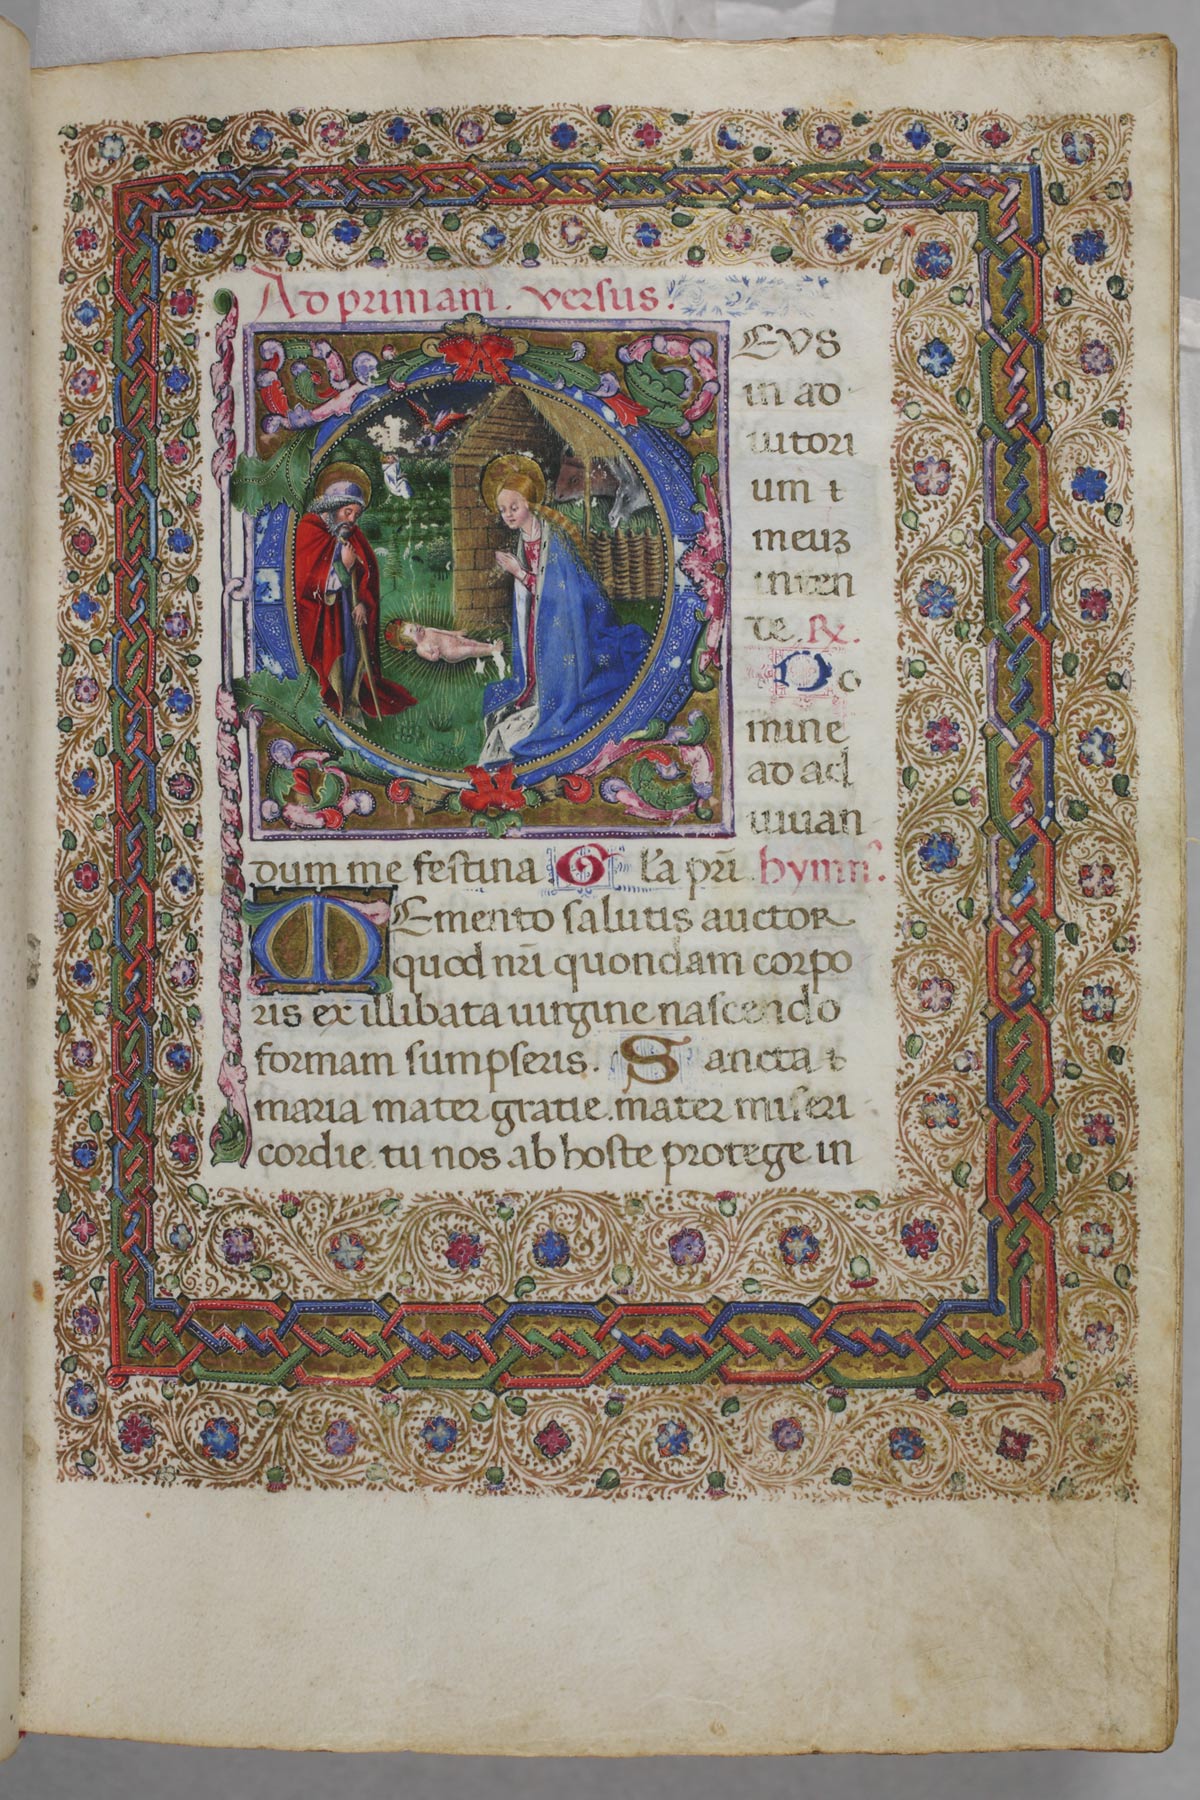 Ad primam. versus.
DEVS
in ad
iutori
um t
meuz
inten
de. R.
Do
mine
ad ad
iuuan
dum me festina. G la pri. hymn.
Memento salutis auctor
quod nri quondam corpo
ris ex illibata uirgine nascendo
formam sumpseris. Sancta t
maria mater gratie. mater miseri
cordie tu nos ab hoste protege in